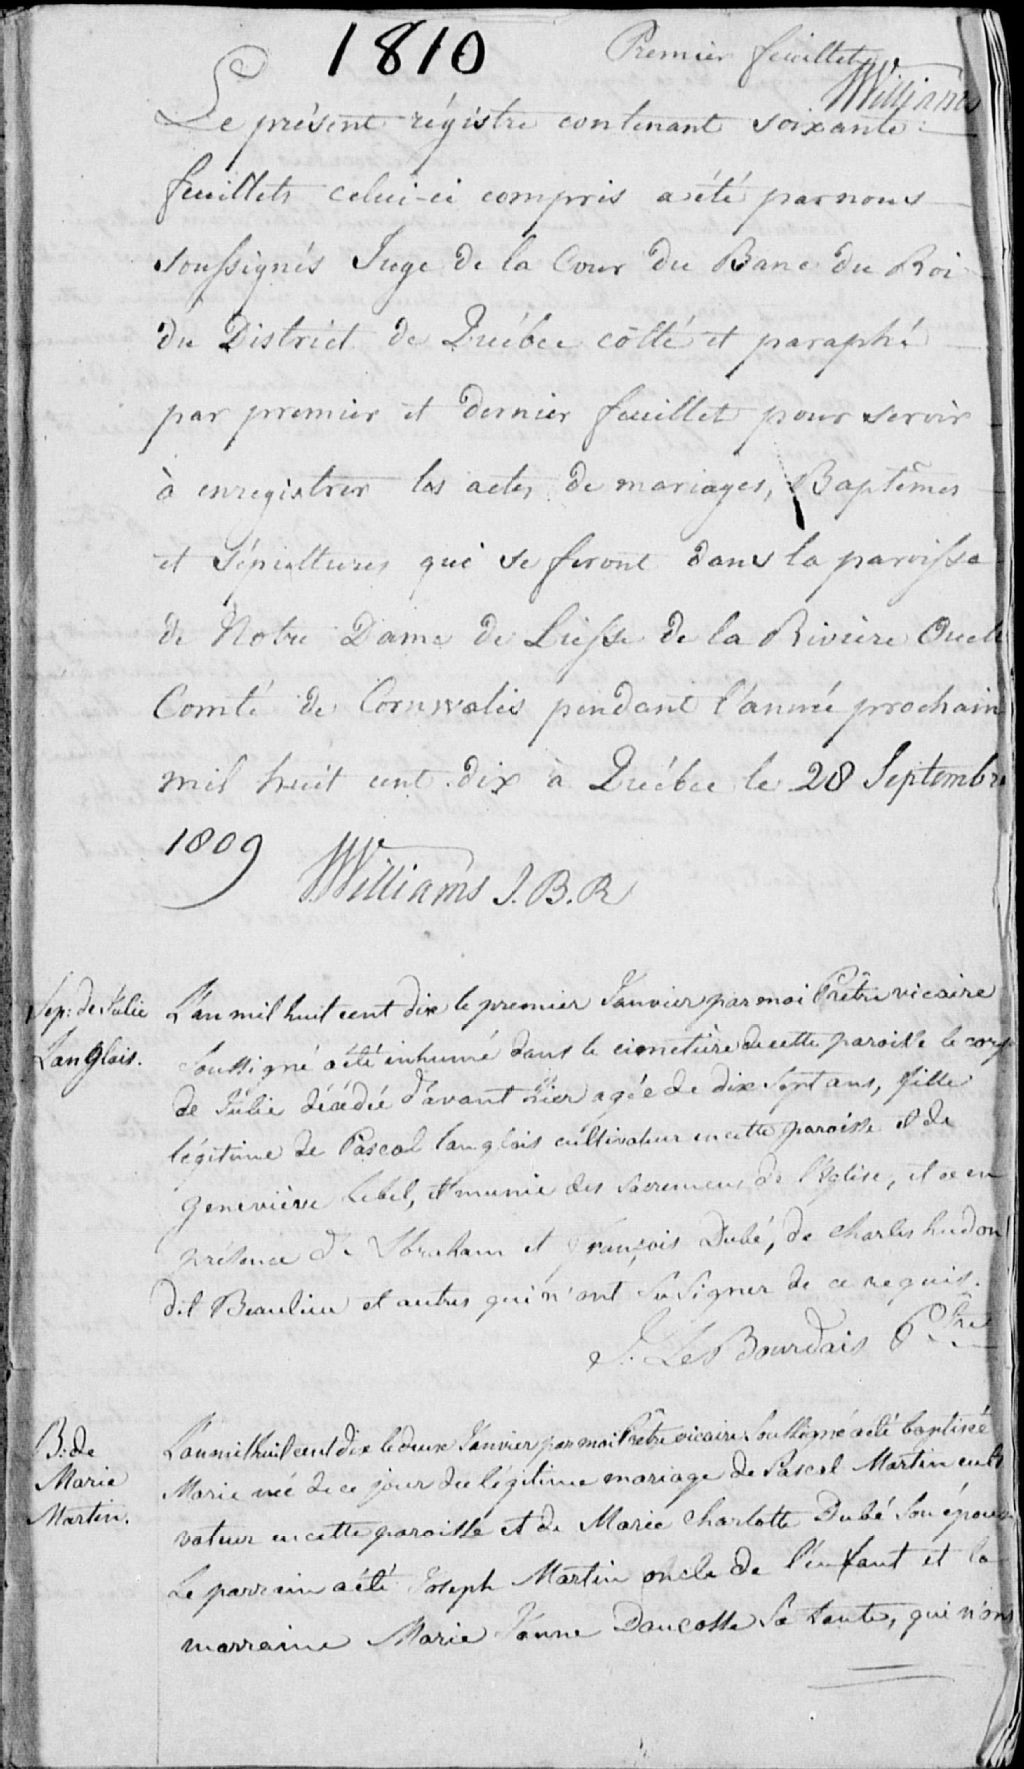 1810
Premier feuillet
Williams
Le présent régistre contenant soixante
feuillets celui-ci compris a été par nous
soussignés Juge de la Cour du Banc du Roi
du District de Québec côtté et paraphé
par premier et dernier feuillet pour servir
à enregistrer les actes de mariages, Baptêmes
et Sépultures qui se feront dans la paroisse
de Notre Dame de Liesse de la Riviere Ouelle
Comté de Cornwalis pendant l'année prochain
mil huit cent dix à Québec le 28 Septembre
1809
Williams J.B.R
Sep: de Julie
Langlois.
L'an mil huit cent dix le premier Janvier par moi Prêtre vicaire
Soussigné a été inhumé dans le cimetière de cette paroisse le corps
de Julie décédée d'avant hier agée de dix sept ans, fille
légitime de Pascal langlois cultivateur en cette paroisse et de
Geneviève Lebel, et munie des sacremens de l'Eglise, et ce en
présence d'Abraham et françois Dubé, de Charles hudon
dit Beaulieu et autres qui n'ont su signer de ce requis.
J. Les Bourdais Ptre
B: de
Marie
Martin.
L'an mil huit cent dix le deux Janvier par moi Prêtre vicaire Soussigné a été baptisée
Marie née de ce jour du légitime mariage de Pascal Martin culti
vateur en cette paroisse et de Marie Charlotte Dubé Son épouse
Le parrain a été Joseph Martin oncle de l'enfant et la
marraine Marie Jeanne Dancosse Sa tante, qui n'ont